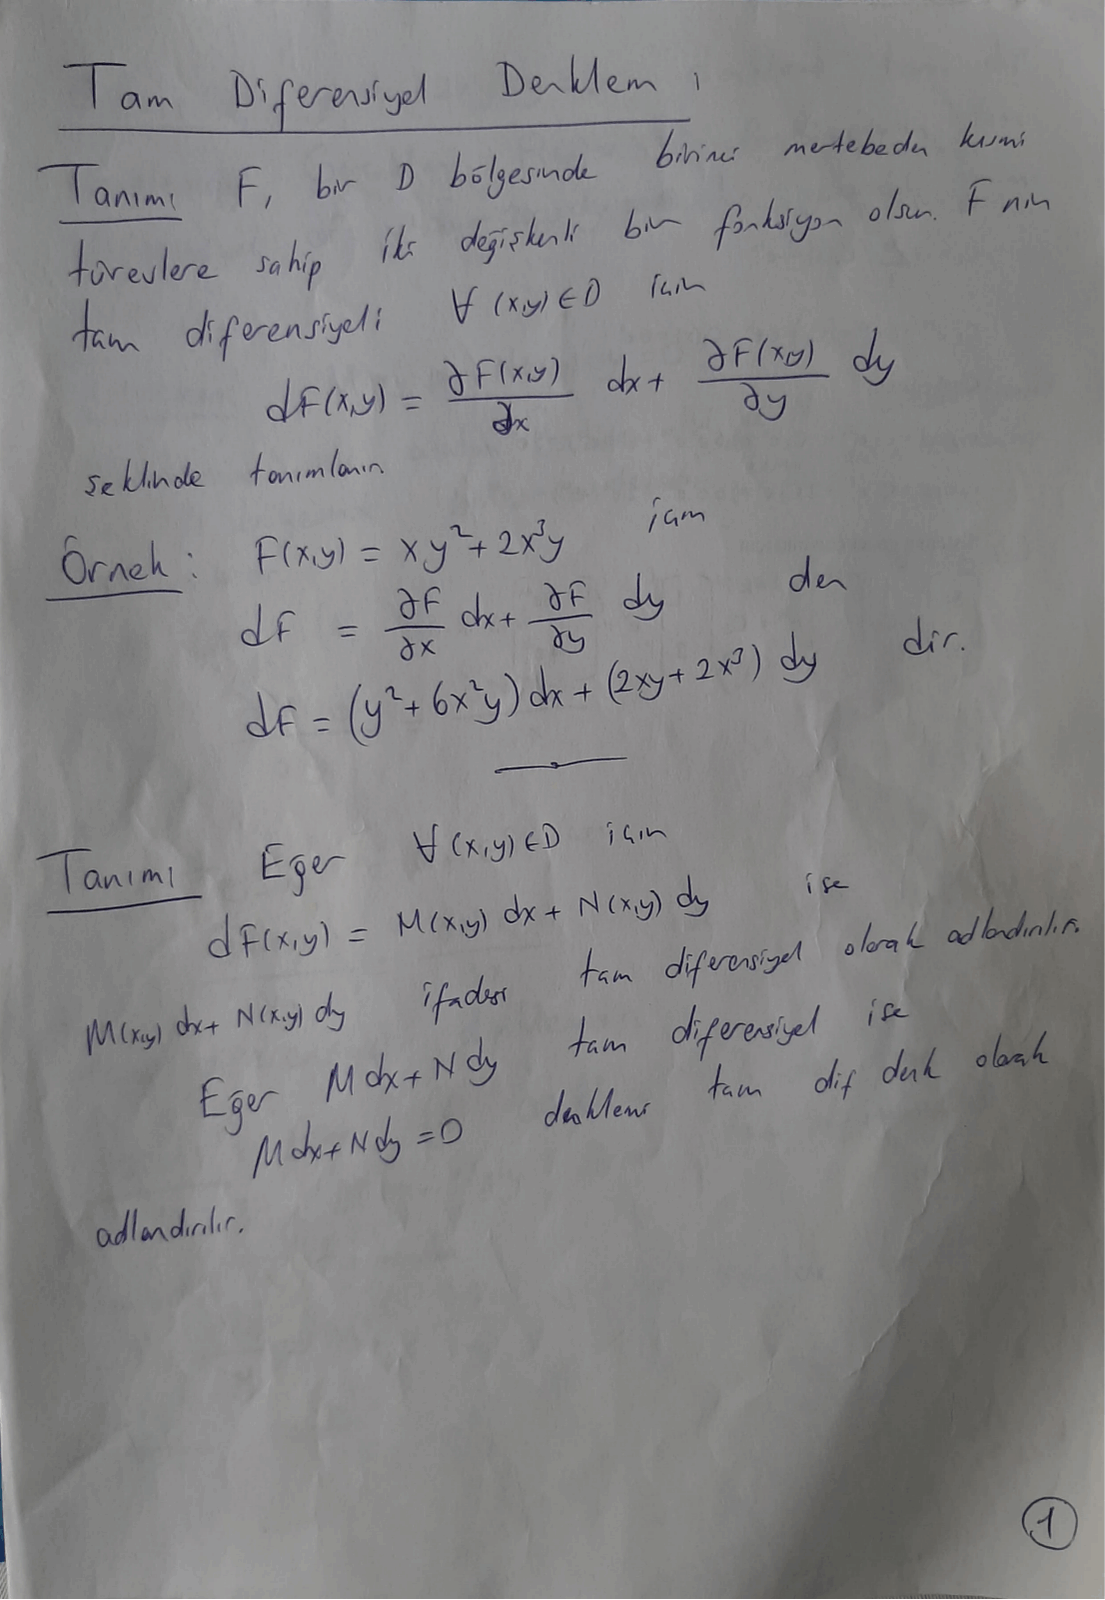 Tam Diferensiyel Denklem:
Tanım: F, bir D bölgesinde birinci mertebeden kısmi
türevlere sahip iki değişkenli bir fonksiyon olsun. F nin
tam diferensiyeli ∀ (x,y) ∈ D için
dF(x,y) = ∂F(x,y)/∂x dx + ∂F(x,y)/∂y dy
şeklinde tanımlanır
Örnek: F(x,y) = xy² + 2x³y için
dF = ∂F/∂x dx + ∂F/∂y dy den
dF = (y² + 6x²y) dx + (2xy + 2x³) dy dir.
Tanım: Eğer ∀ (x,y) ∈ D için
dF(x,y) = M(x,y) dx + N(x,y) dy ise
M(x,y) dx + N(x,y) dy ifadesi tam diferensiyel olarak adlandırılır.
Eğer M dx + N dy tam diferensiyel ise
M dx + N dy = 0 denklemi tam dif denk olarak
adlandırılır.
1